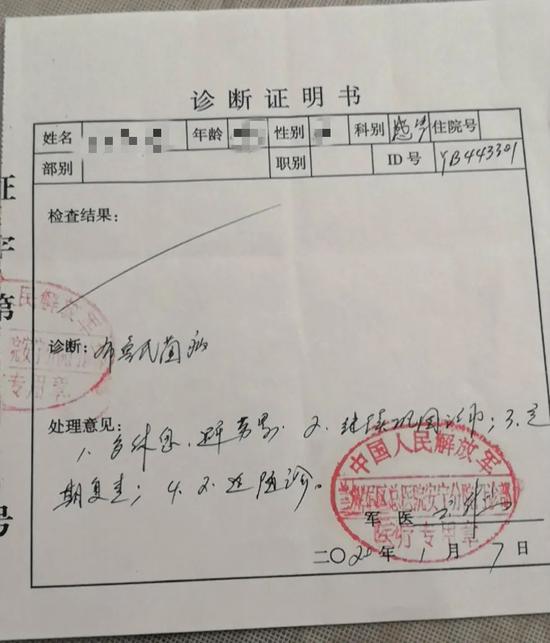 诊断证明书
姓名 年龄 性别 科别 感染 住院号
部别 职别 ID号 YB443301
检查结果：
诊断：布鲁氏菌病
处理意见：
1. 多休息，避劳累. 2. 继续巩固治疗；3. 定
期复查；4. 不适随诊。
中国人民解放军
总医院安宁分院门诊部
医疗专用章
军医
二〇20年1月7日
证
字
第
号
人民解放军
院安宁分
专用章